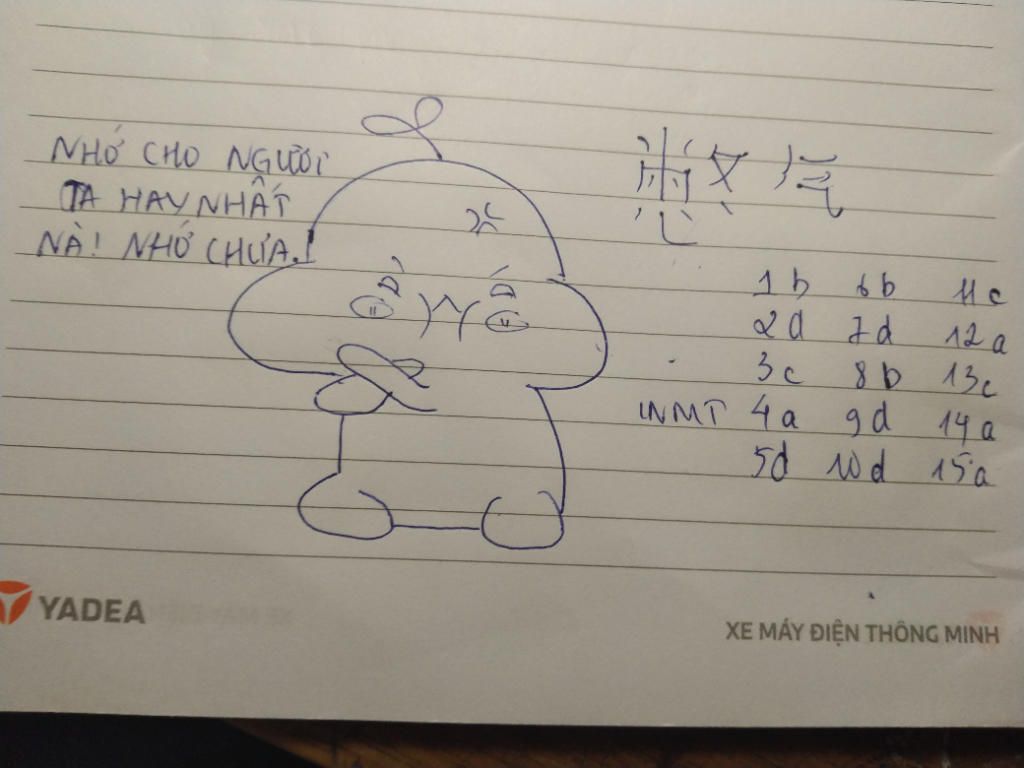 NHỚ CHO NGƯỜI
TA HAY NHẤT
NÀ! NHỚ CHƯA.!
1b 6b 11c
2d 7d 12a
3c 8b 13c
4a 9d 14a
5d 10d 15a
YADEA
XE MÁY ĐIỆN THÔNG MINH